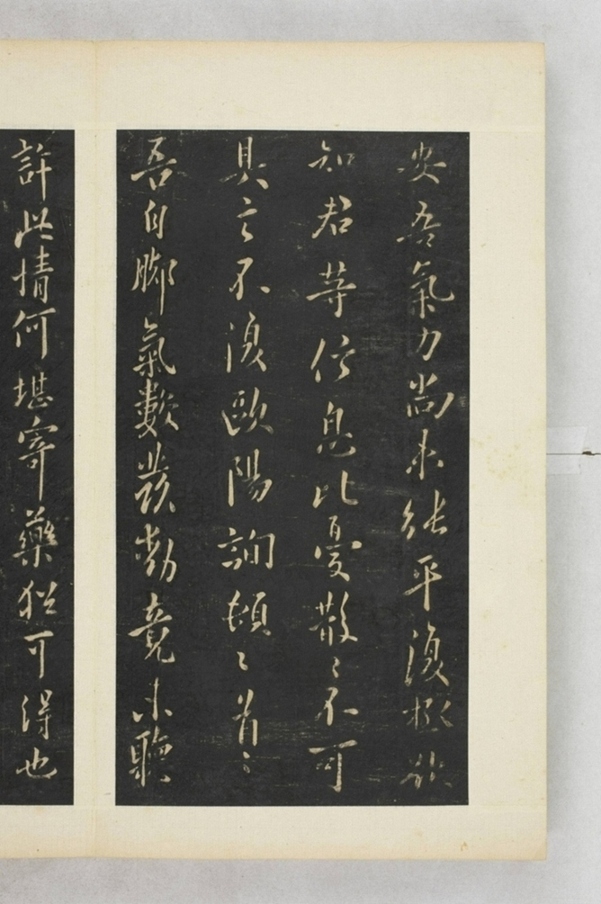 安吾氣力尚未能平復極欲
知君等信息比憂散〻不可
具言不復歐陽詢頓〻首〻
吾自腳氣數發動竟未聽
許此情何堪寄藥猶可得也